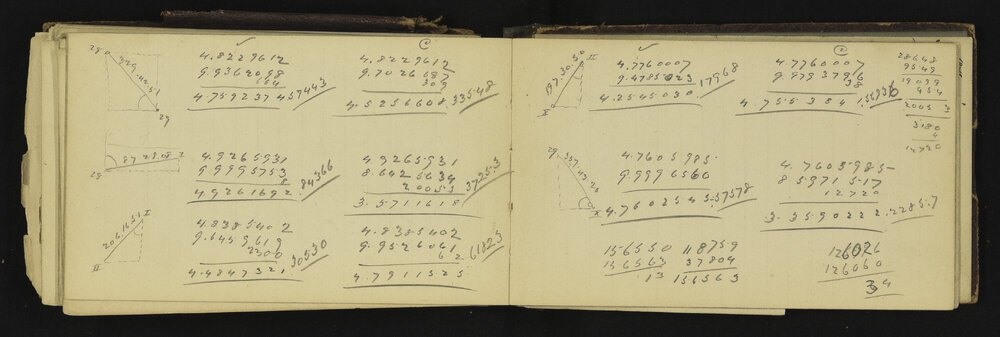 28
329.42.51
29
✓
4.8229612
9.9362098
4.7592374
57443
c
4.8229612
9.7026687
309
4.5256608
33548
87.28.08
28
4.9265931
9.9995753
8
4.9261692
84366
4.9265931
8.6426634
20053
3.5711618
3725.3
206.16.51
I
II
4.8385402
9.6459619
2300
4.4847321
30530
4.8385402
9.9526061
62
4.7911525
61823
197.30.50
II
✓
4.7760007
9.4785023
4.2545030
17968
4.7760007
9.9793796
38
4.7553841
56936
28648
9549
19099
954
2005 3
3180
4
12720
29
4.7605985
9.9996560
4.7602545
57578
4.7605985
8.5971517
12720
3.3590222
2285.7
156550
156563
13
118759
37804
156563
126026
126060
34